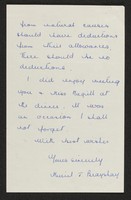 from natural causes
should have deductions
from their allowances
there should be no
deductions.
I did enjoy meeting
you & Miss Magill at
the dinner. It was
an occasion I shall
not forget
With best wishes
Yours sincerely
Muriel J.